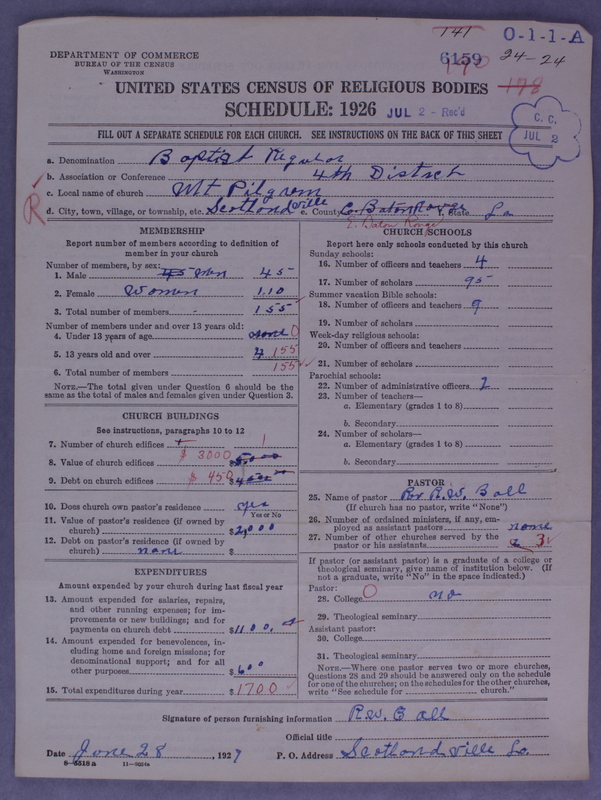 141
O-1-1-A
DEPARTMENT OF COMMERCE
BUREAU OF THE CENSUS
WASHINGTON
6159
24-24
UNITED STATES CENSUS OF RELIGIOUS BODIES
178
SCHEDULE: 1926
JUL 2 - Rec'd
C. C.
JUL 2
FILL OUT A SEPARATE SCHEDULE FOR EACH CHURCH. SEE INSTRUCTIONS ON THE BACK OF THIS SHEET
a. Denomination Baptist Regular
b. Association or Conference 4th Distrct
c. Local name of church Mt Pilgrom
R
d. City, town, village, or township, etc. Scotlandville e. County E. Baton Rouge f. State La
E. Baton Rouge
MEMBERSHIP
Report number of members according to definition of
member in your church
Number of members, by sex:
1. Male 45 men 45
2. Female Women 110
3. Total number of members 155
Number of members under and over 13 years old:
4. Under 13 years of age none 0
5. 13 years old and over 155
6. Total number of members 155
NOTE.—The total given under Question 6 should be
the same as the total of males and females given under Question 3.
CHURCH BUILDINGS
See instructions, paragraphs 10 to 12
7. Number of church edifices 1
8. Value of church edifices $ 3000
9. Debt on church edifices $ 450
10. Does church own pastor's residence yes
Yes or No
11. Value of pastor's residence (if owned by
church) $2,000
12. Debt on pastor's residence (if owned by
church) none $
EXPENDITURES
Amount expended by your church during last fiscal year
13. Amount expended for salaries, repairs,
and other running expenses; for im-
provements or new buildings; and for
payments on church debt $1100.
14. Amount expended for benevolences, in-
cluding home and foreign missions; for
denominational support; and for all
other purposes $600
15. Total expenditures during year $1700
CHURCH SCHOOLS
Report here only schools conducted by this church
Sunday schools:
16. Number of officers and teachers 4
17. Number of scholars 95
Summer vacation Bible schools:
18. Number of officers and teachers 9
19. Number of scholars
Week-day religious schools:
20. Number of officers and teachers
21. Number of scholars
Parochial schools:
22. Number of administrative officers
23. Number of teachers—
a. Elementary (grades 1 to 8)
b. Secondary
24. Number of scholars—
a. Elementary (grades 1 to 8)
b. Secondary
PASTOR
25. Name of pastor Rev R.W. Ball
(If church has no pastor, write "None")
26. Number of ordained ministers, if any, em-
ployed as assistant pastors none
27. Number of other churches served by the
pastor or his assistants 3
If pastor (or assistant pastor) is a graduate of a college or
theological seminary, give name of institution below. (If
not a graduate, write "No" in the space indicated.)
Pastor:
28. College O no
29. Theological seminary
Assistant pastor:
30. College
31. Theological seminary
NOTE.—Where one pastor serves two or more churches,
Questions 28 and 29 should be answered only on the schedule
for one of the churches; on the schedules for the other churches,
write "See schedule for church."
Signature of person furnishing information Rev. Ball
Official title
Date June 28, 1927 P. O. Address Scotlandville La.
8—5518 a